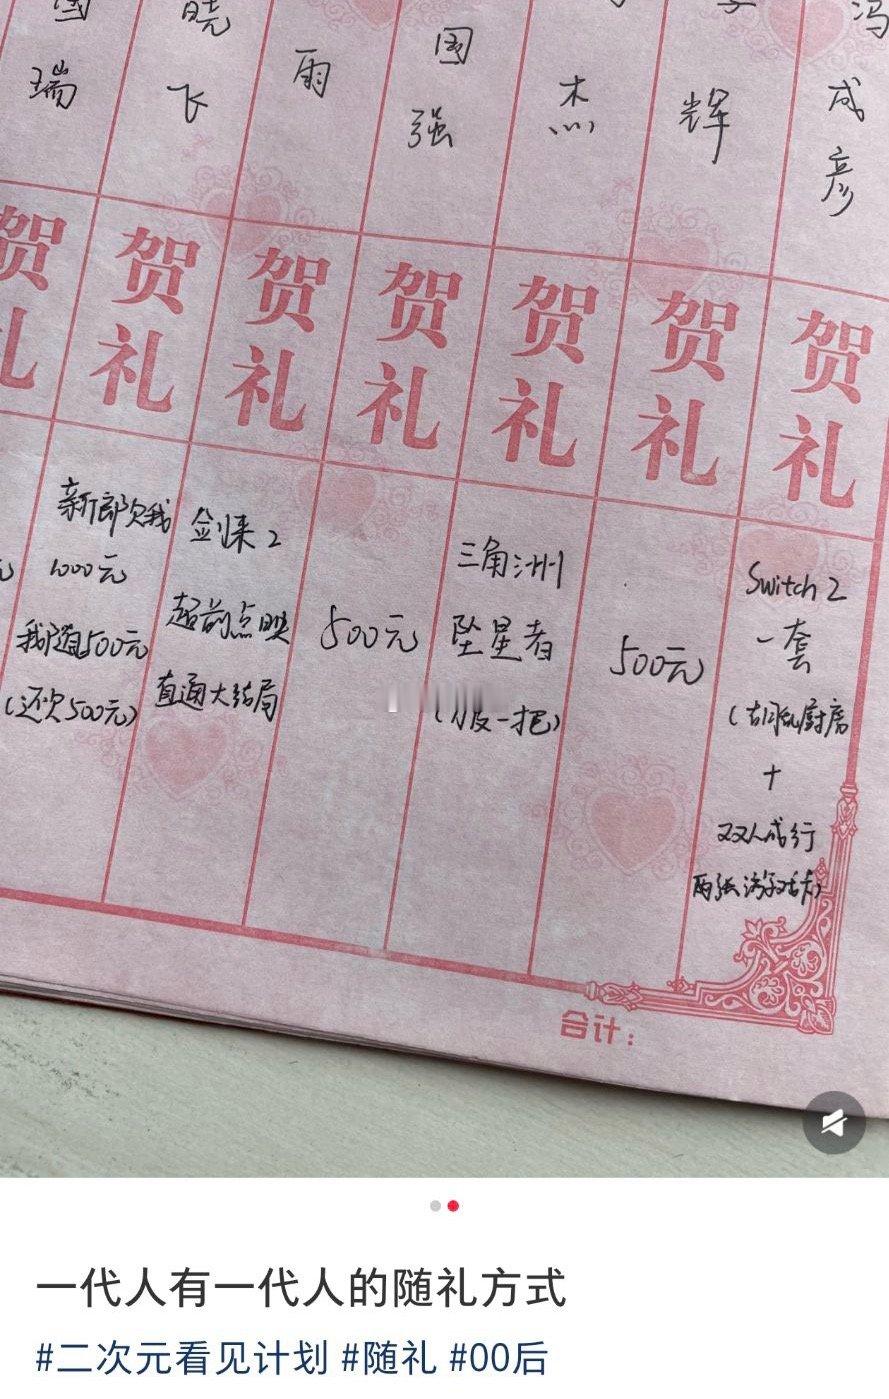 国 晓 国 冯
瑞 飞 雨 强 杰 辉 成彦
贺礼 贺礼 贺礼 贺礼 贺礼 贺礼 贺礼
新郎欠我
1000元
我随500元
(还欠500元)
剑来2
超前点映
直通大结局
500元
三角洲
坠星者
一把)
500元
Switch 2
一套
(胡闹厨房
+
双人成行
两张游戏卡)
合计:
一代人有一代人的随礼方式
#二次元看见计划 #随礼 #00后